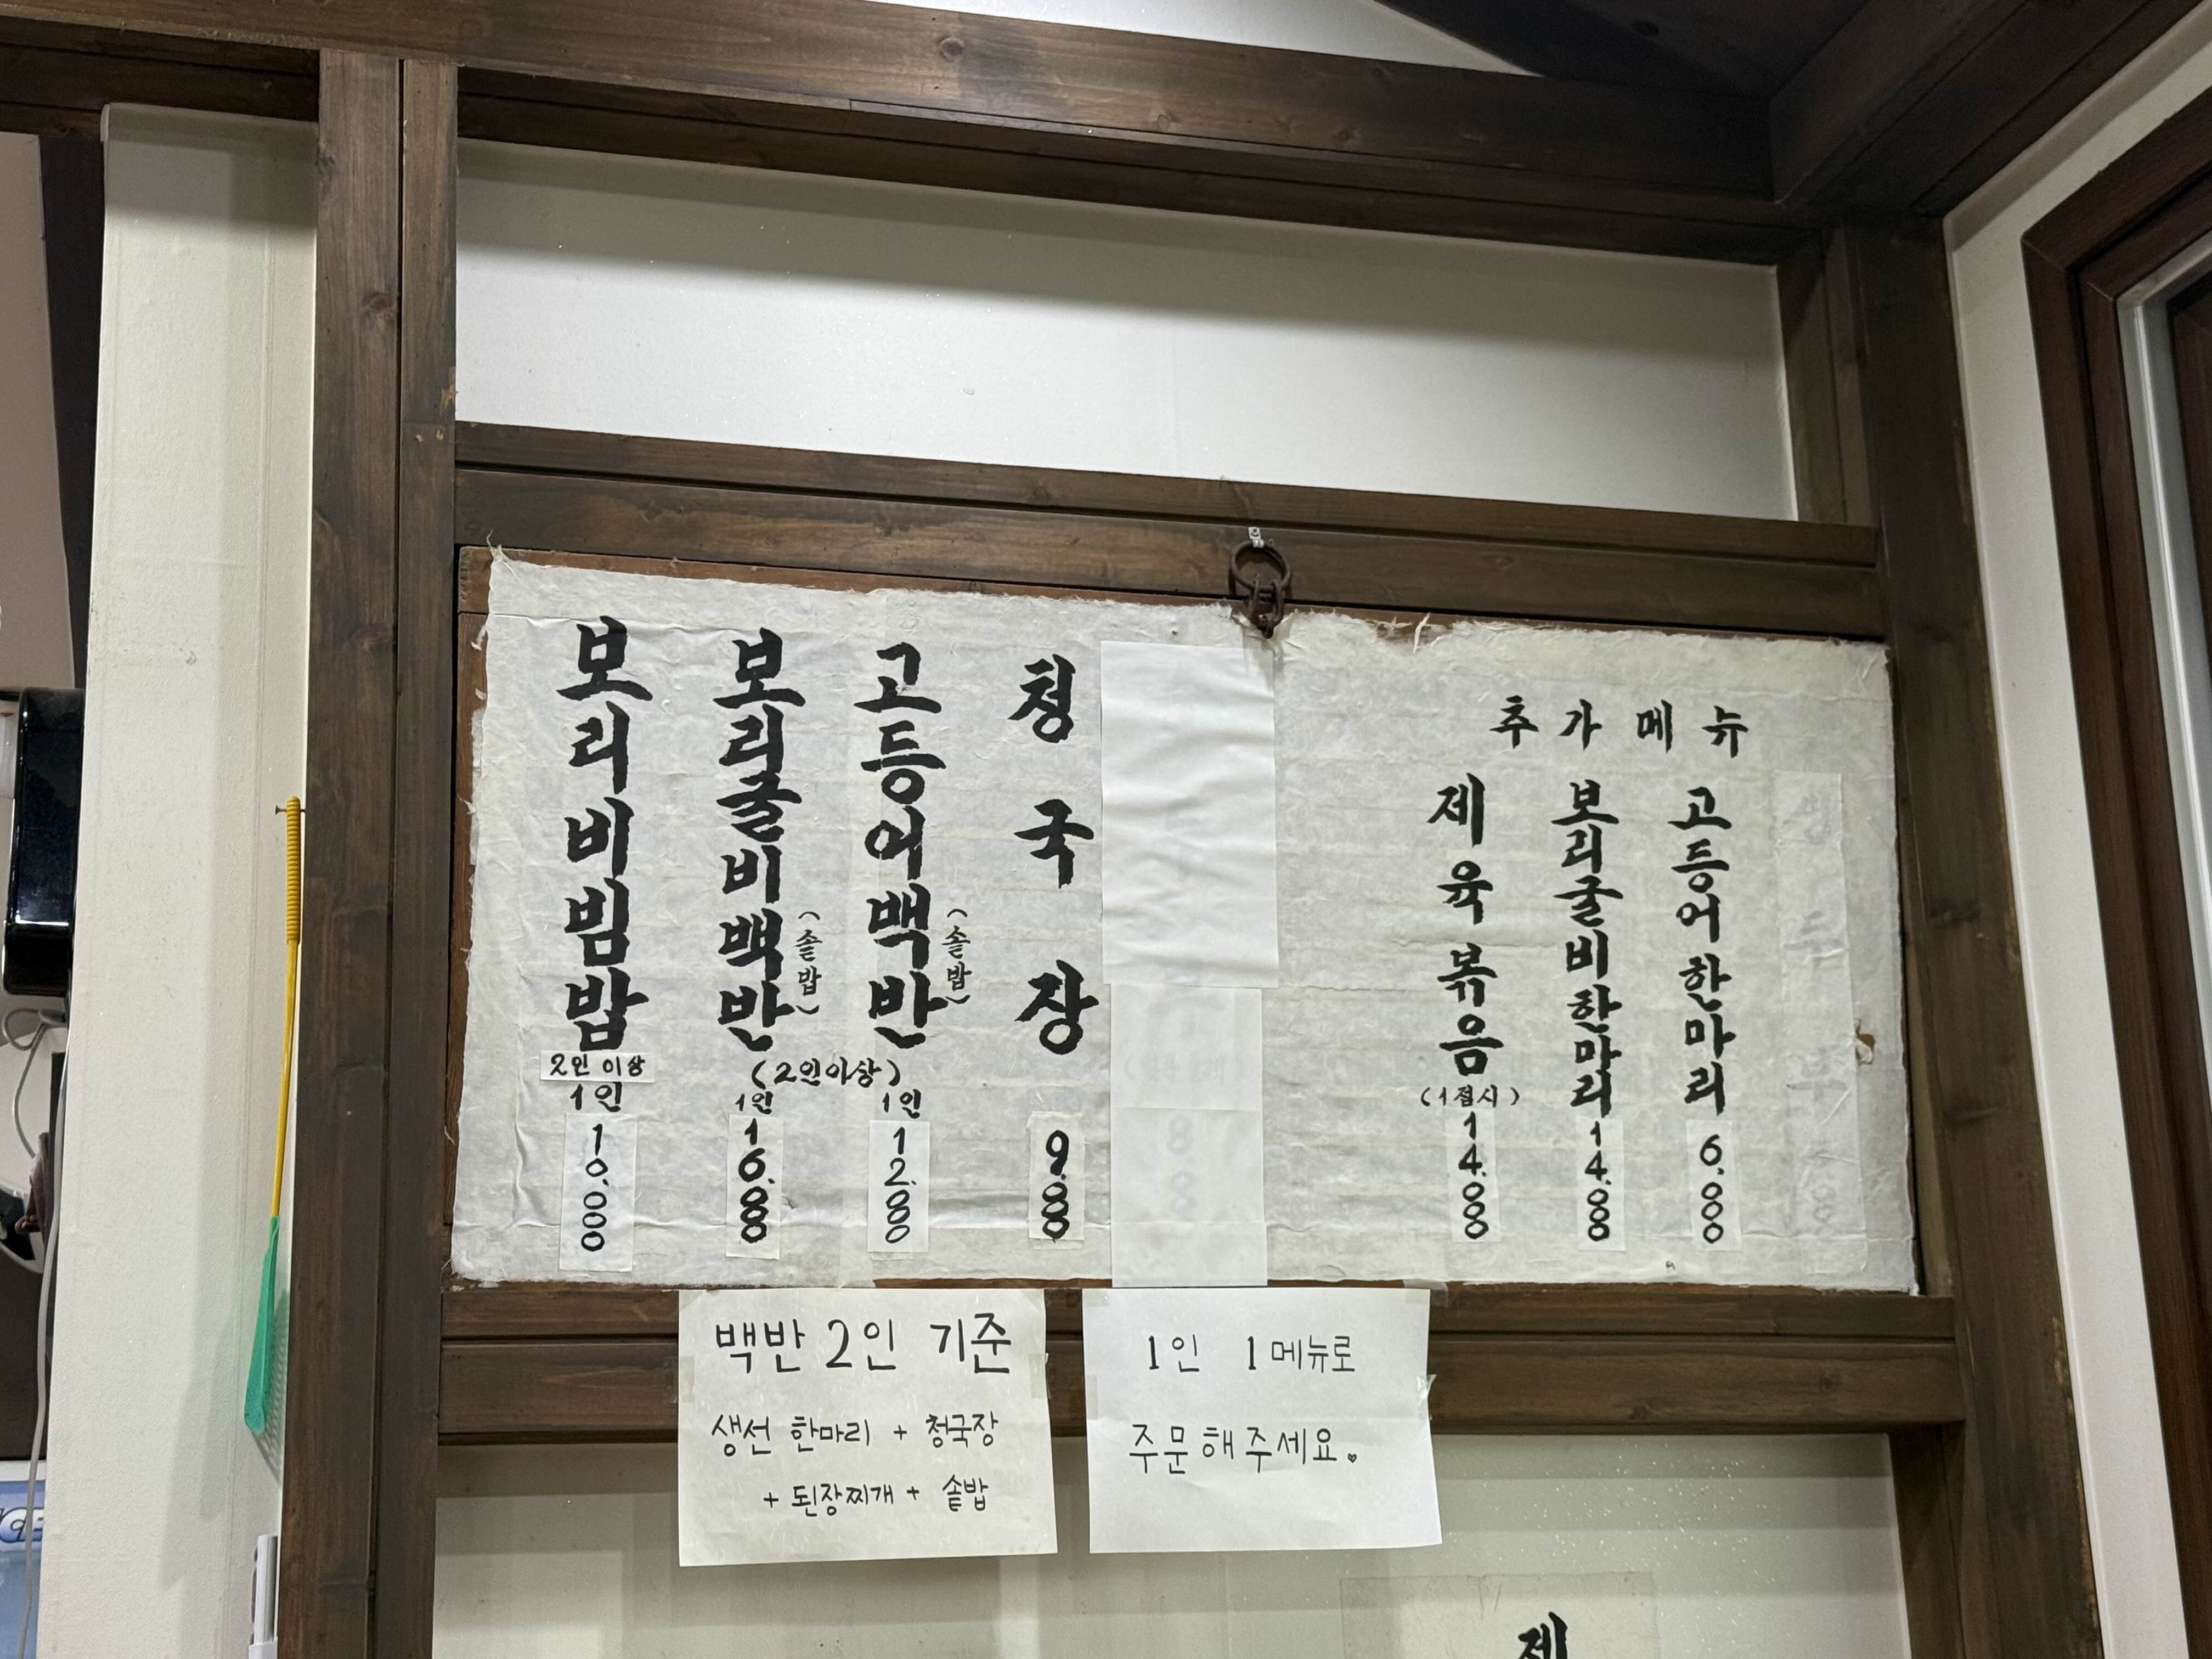 보리비빔밥
2인 이상
1인
10.000
보리굴비백반
(솥밥)
고등어백반
(솥밥)
(2인이상)
1인
16.000
1인
12.000
청국장
9.000
추가메뉴
제육볶음
(1접시)
14.000
보리굴비한마리
14.000
고등어한마리
6.000
백반 2인 기준
생선 한마리 + 청국장
+ 된장찌개 + 솥밥
1인 1메뉴로
주문해주세요.
제